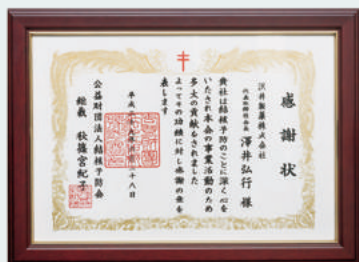 感謝状
沢井製薬株式会社
代表取締役会長 澤井弘行 様
貴社は結核予防のことに深く心を
いたされ本会の事業活動のため
多大の貢献をされました
よってその功績に対し感謝の意を
表します
平成二十 八日
公益財団法人結核予防会
総裁 秋篠宮紀子